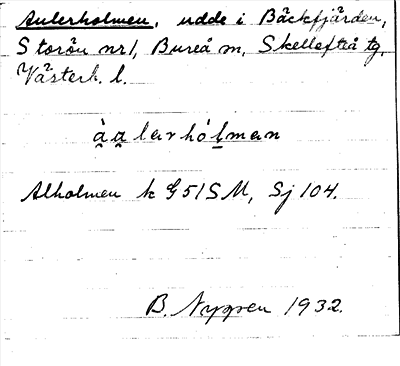 Aulerholmen, udde i Bäckfjärden,
Storön nr1, Bureå sn, Skellefteå tg,
Västerb. l.
àa̯larhólman
Alholmen k G51SM, Sj 104.
B. Nygren 1932.